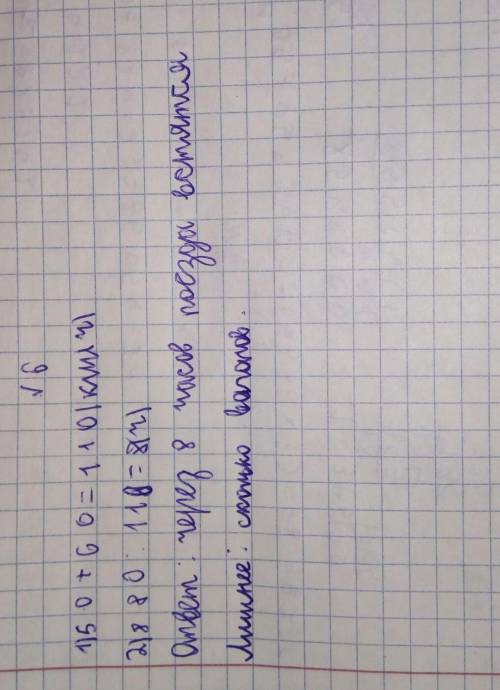 № 6
1) 50 + 60 = 110 (км/ч)
2) 880 : 110 = 8 (ч)
Ответ : через 8 часов поезда встятся
Лишнее : сколько вагонов.